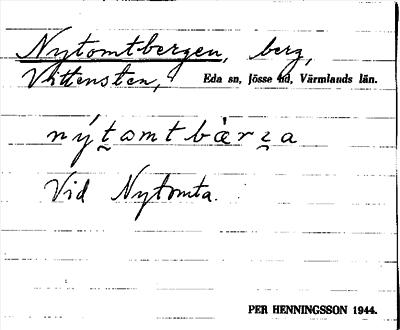 Nytomtbergen, berg,
Vittensten, Eda sn, Jösse hd, Värmlands län.
nýt̰omtbàrz̰a
Vid Nytomta.
PER HENNINGSSON 1944.